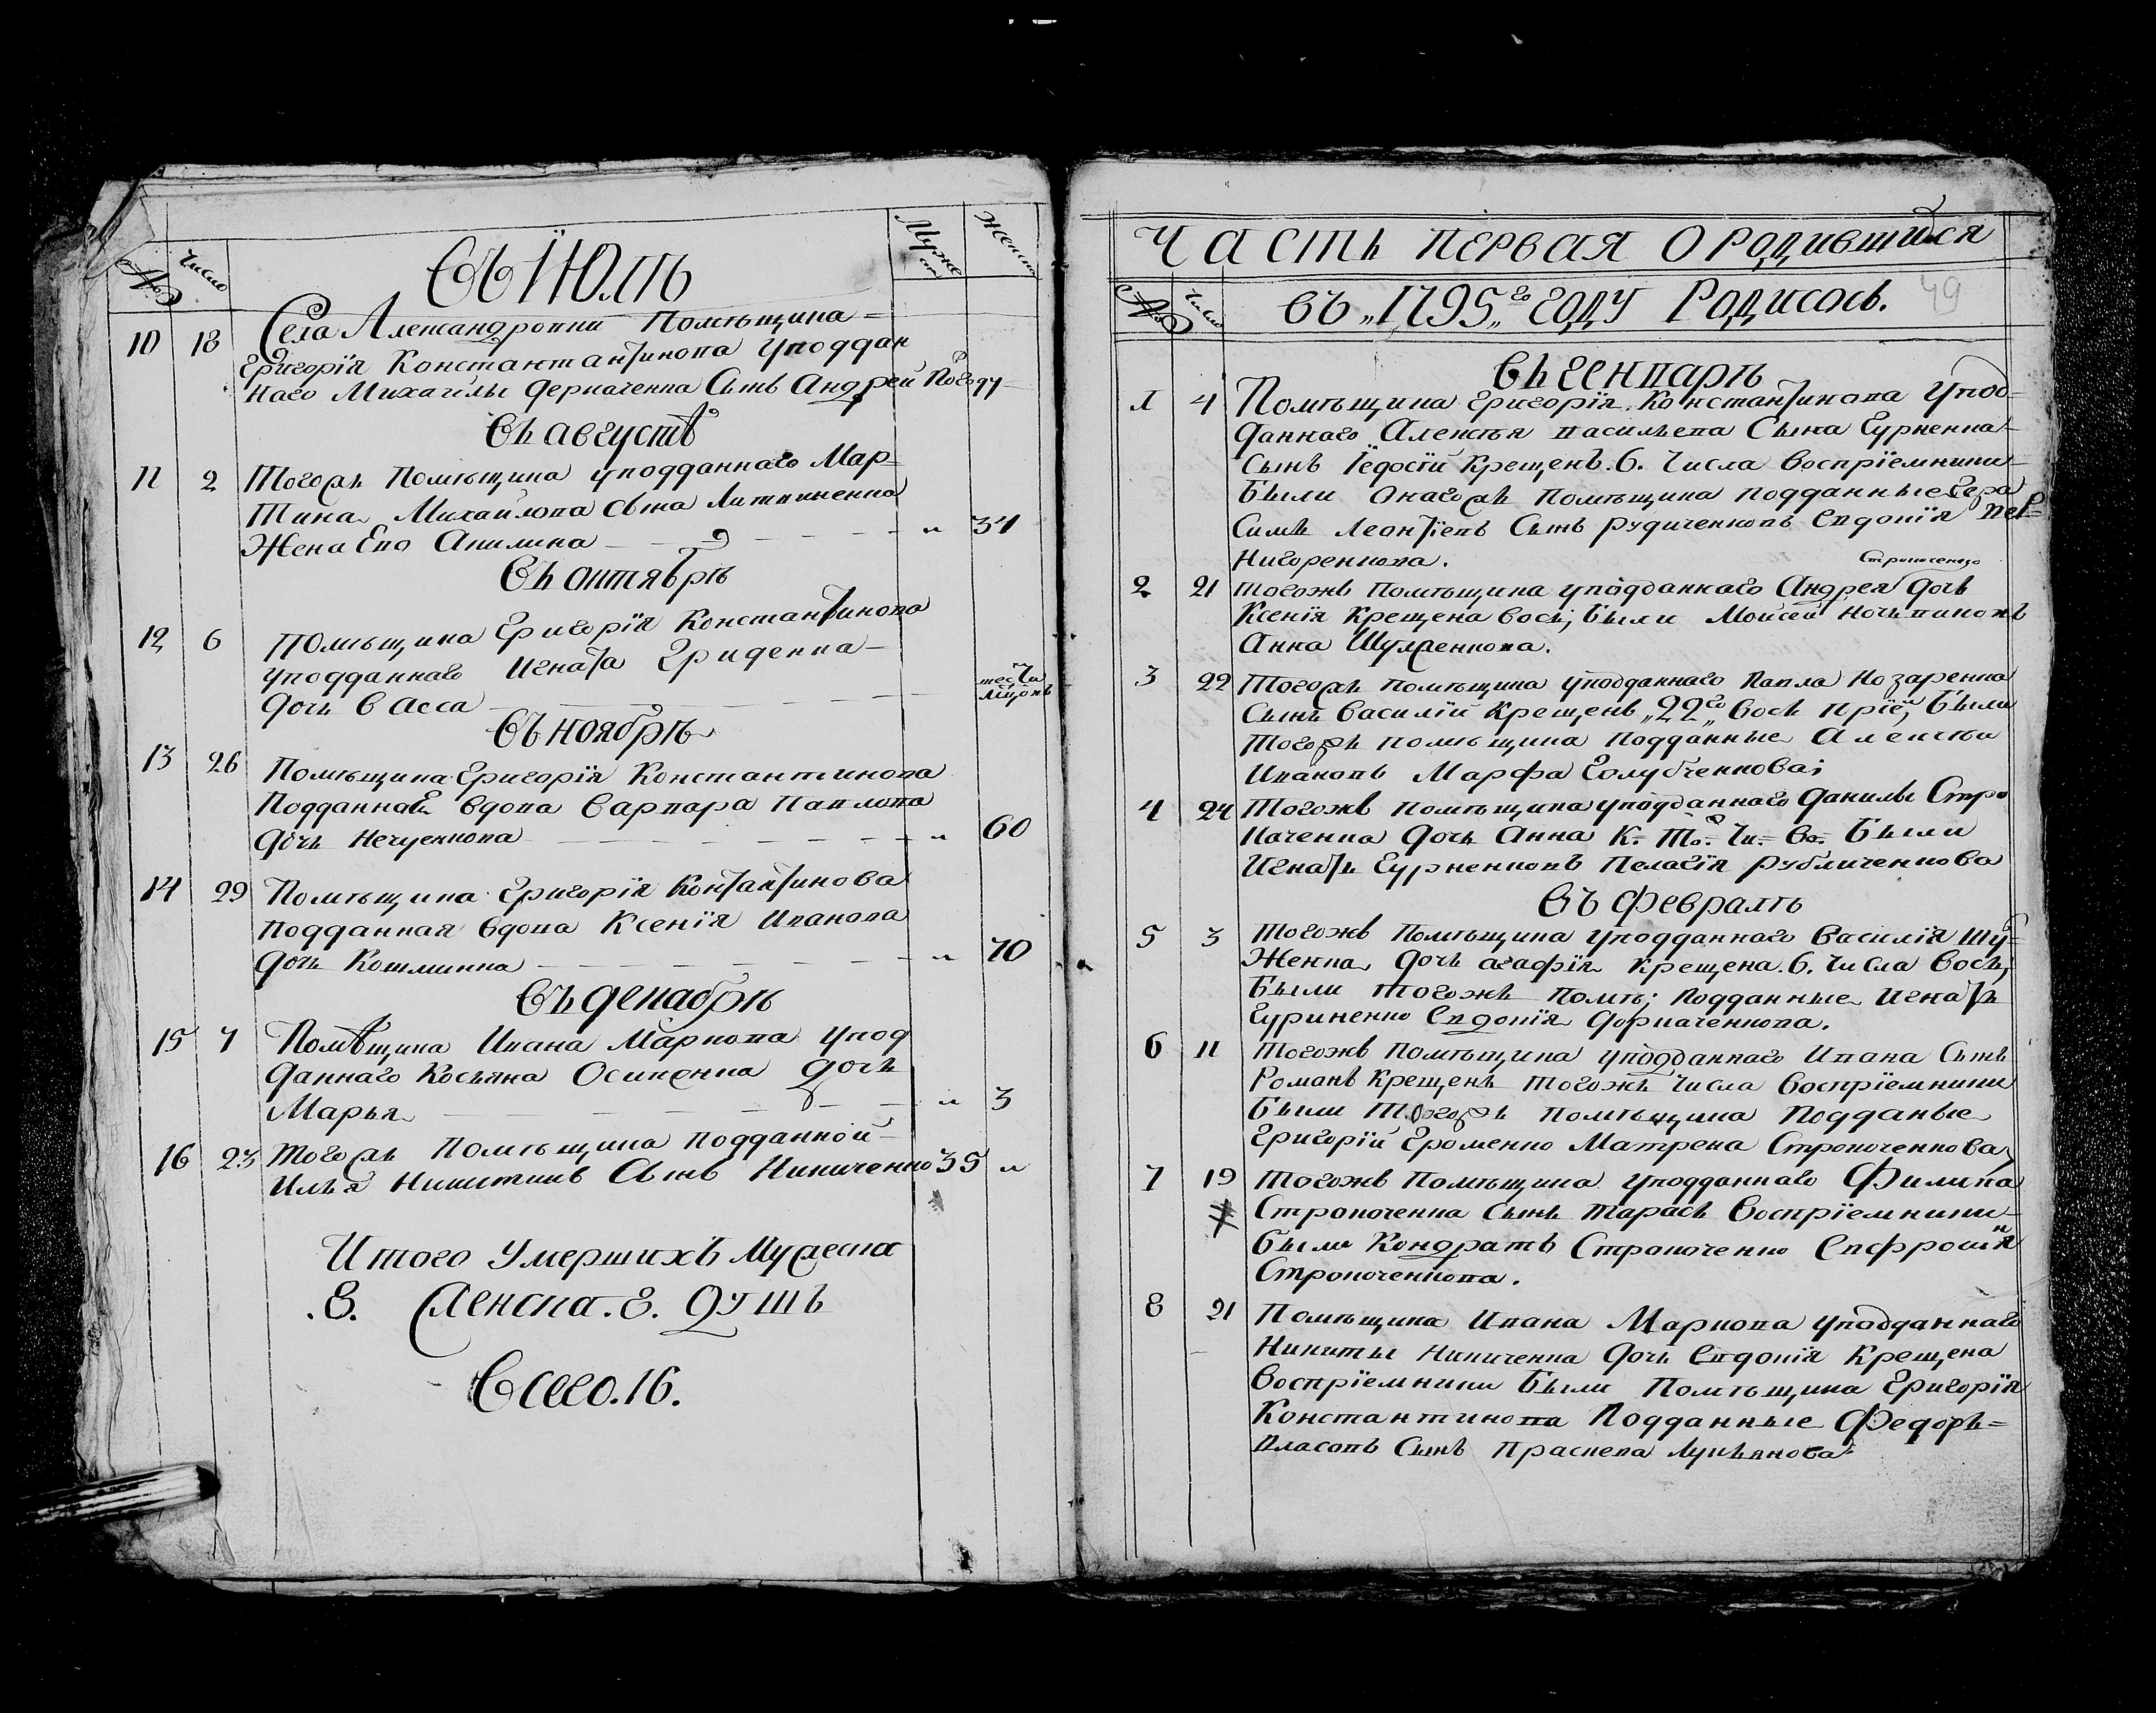 № Число Муже ст Женско
Въ Їюлѣ
10 18 Села Александровки Помѣщика
Григорїя Константинова уподдан
наго Михаилы Деркаченка Сынъ Андрей Погоду
Въ августѣ
11 2 Тогожъ Помѣщика уподданнаго Мар-
тина Михайлова сына Литвиненка
Жена Его Акилина „ 34
Въ октябрѣ
12 6 Помѣщика Григорїя Константинова
уподданнаго Игната Гриденка
дочь Васса шести мцовъ
Въ ноябрѣ
13 26 Помѣщика Григорїя Константинова
Подданная вдова Варвара Павлова
дочь Нечуенкова „ 60
14 29 Помѣщика Григорїя Константинова
подданная вдова Ксенїя Иванова
дочь „ 70
Въ декабрѣ
15 7 Помѣщика Ивана Маркова упод
даннаго Косьяна Осипенка дочь
Марья „ 3
16 23 Тогожъ Помѣщика подданной
Илья Никитинъ Сынъ Никиченко 35 „
Итого Умершихъ Мужеска
.8. Женска .8. Душъ
Всего .16.
Часть первая о родившихся
№ Число въ „1795„ го году Родисось. 49
Въ генварѣ
1 4 Помѣщика Григорїя Константинова упод-
даннаго Алексѣя Васильева Сына Гурненка
Сынъ Їедосїй Крещенъ .6. Числа Воспрїемники
были Онагожъ Помѣщика подданные Гера
симъ Леонтїевъ Сынъ Рудиченковъ Евдокїя
Нигоренкова. Строкоченого
2 21 Тогожъ Помѣщика уподданнаго Андрея дочь
Ксенїя Крещена вось; были Мойсей
Анна Шулженкова.
3 22 Тогожъ помѣщика уподданнаго Павла Козаренка
Сынъ Василїй Крещенъ „22го„ Вось прїе; были
Тогожъ помѣщика подданные Алексѣй
Ивановъ Марфа Голубченкова;
4 24 Тогожъ помѣщика уподданнаго Данилы Стро
каченка дочь Анна К. То. Чи. Во. были
Игнатъ Гурненковъ Пелагїя Рубличенкова
Въ Февралѣ
5 3 Тогожъ Помѣщика уподданнаго Василїя Шу-
Женка дочь агафїя Крещена .6. Числа Вось;
были тогожъ помѣ; Подданные Игнатъ
Гуриненко Евдокїя Доркаченкова.
6 11 Тогожъ Помѣщика уподданнаго Ивана Сынъ
Романъ Крещенъ тогожъ Числа Воспрїемники
были Тогожъ помѣщика Подданые
Григорїй Ероменко Матрена Строкоченкова
7 19 Тогожъ Помѣщика уподданнаго Филипа
Строкоченка Сынъ Тарасъ Воспрїемники
были Кондратъ Строкоченко Евфросинїя
Строкоченкова.
8 21 Помѣщика Ивана Маркова уподданнаго
Никиты Никиченка дочь Евдокїя Крещена
Воспрїемники были Помѣщика Григорїя
Константинова Подданные Федоръ=
Власовъ Сынъ Праскева Лукьянова